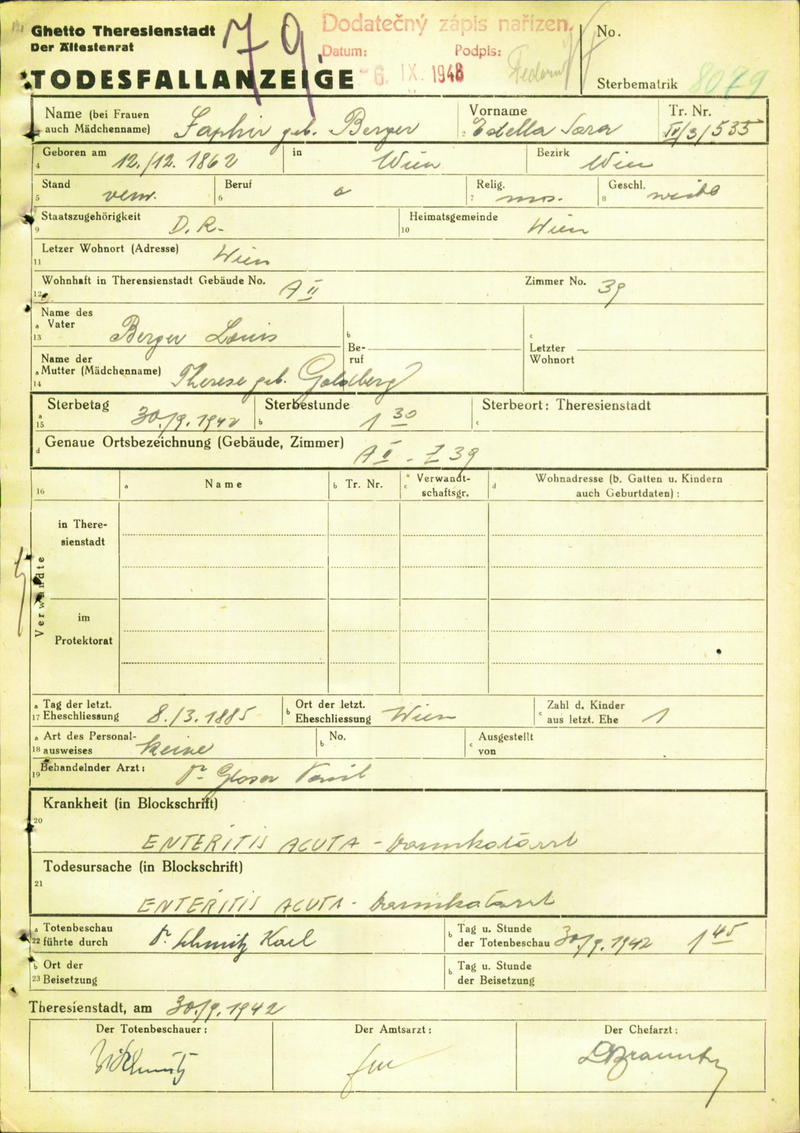 Ghetto Theresienstadt
Der Ältestenrat
79.
Dodatečný zápis nařízen.
Datum: Podpis:
6. IX. 1948
No.
TODESFALLANZEIGE
Sterbematrik 8079
Name (bei Frauen auch Mädchenname) Saphir geb. Berger
Vorname Sara
Tr. Nr. IV/3/535
4 Geboren am 12./12. 1862 in Wien Bezirk Wien
5 Stand verw. 6 Beruf 7 Relig. mos. 8 Geschl. weibl
9 Staatszugehörigkeit D. R. 10 Heimatsgemeinde Wien
11 Letzer Wohnort (Adresse) Wien
12 Wohnhaft in Theresienstadt Gebäude No. A II Zimmer No. 39
13 a Name des Vater Berger Louis
b Beruf
c Letzter Wohnort
14 a Name der Mutter (Mädchenname) Therese geb. Goldberg
15 a Sterbetag 30./9. 1942 b Sterbestunde 1 30 c Sterbeort: Theresienstadt
d Genaue Ortsbezeichnung (Gebäude, Zimmer) A II - Z 39
16 a Name b Tr. Nr. c Verwandtschaftsgr. d Wohnadresse (b. Gatten u. Kindern auch Geburtdaten) :
Verwandte
in Theresienstadt
im Protektorat
17 a Tag der letzt. Eheschliessung 8./3. 1885 b Ort der letzt. Eheschliessung Wien c Zahl d. Kinder aus letzt. Ehe 1
18 a Art des Personalausweises keine b No. c Ausgestellt von
19 Behandelnder Arzt: Dr.
20 Krankheit (in Blockschrift)
ENTERITIS ACUTA - Darmkatarrh
21 Todesursache (in Blockschrift)
ENTERITIS ACUTA - Darmkatarrh
22 a Totenbeschau führte durch Dr. Schmitz Karl b Tag u. Stunde der Totenbeschau 30./9. 1942 1 45
23 b Ort der Beisetzung b Tag u. Stunde der Beisetzung
Theresienstadt, am 30./9. 1942
Der Totenbeschauer: Der Amtsarzt: Der Chefarzt: